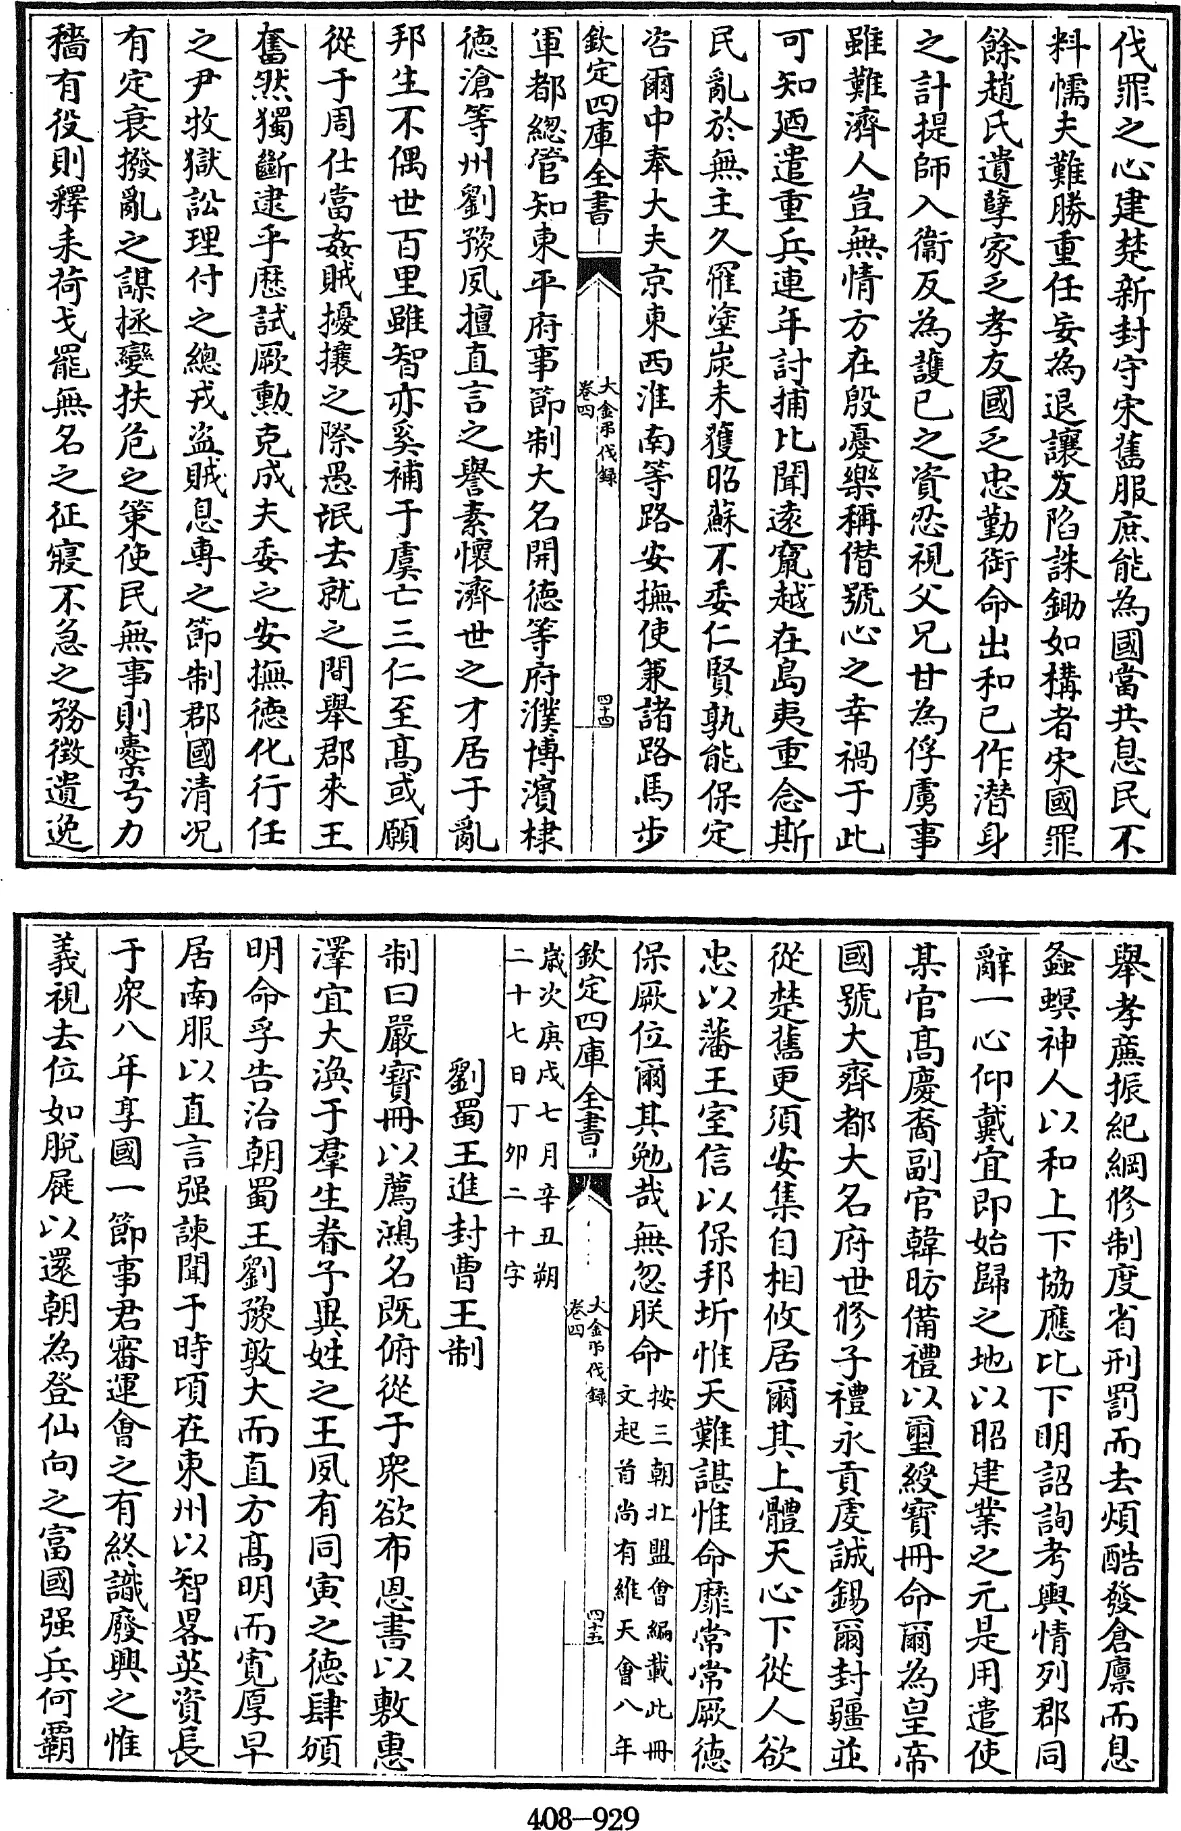 伐罪之心建楚新封守宋舊服庶能為國當共息民不
料懦夫難勝重任妄為退讓反陷誅鋤如構者宋國罪
餘趙氏遺孽家乏孝友國乏忠勤銜命出和已作潛身
之計提師入衞反為護已之資忍視父兄甘為俘虜事
雖難濟人豈無情方在殷憂樂稱僭號心之幸禍于此
可知廼遣重兵連年討捕比聞遠竄越在島夷重念斯
民亂於無主久罹塗炭未獲昭蘇不委仁賢孰能保定
咨爾中奉大夫京東西淮南等路安撫使兼諸路馬步
欽定四庫全書
大金弔伐録
卷四
四十四
軍都總管知東平府事節制大名開德等府濮博濱棣
德滄等州劉豫夙擅直言之譽素懷濟世之才居于亂
邦生不偶世百里雖智亦奚補于虞亡三仁至高或願
從于周仕當姦賊擾攘之際愚氓去就之間舉郡來王
奮然獨斷逮乎歷試厥勳克成夫委之安撫德化行任
之尹牧獄訟理付之總戎盜賊息專之節制郡國清况
有定衰撥亂之謀拯變扶危之策使民無事則櫜弓力
穡有役則釋耒荷戈罷無名之征寢不急之務徵遺逸
舉孝亷振紀綱修制度省刑罰而去煩酷發倉廪而息
螽螟神人以和上下協應比下明詔詢考輿情列郡同
辭一心仰戴宜即始歸之地以昭建業之元是用遣使
某官高慶裔副官韓昉備禮以璽綬寶冊命爾為皇帝
國號大齊都大名府世修子禮永貢䖍誠錫爾封疆並
從楚舊更須安集自相攸居爾其上體天心下從人欲
忠以藩王室信以保邦圻惟天難諶惟命靡常常厥德
保厥位爾其勉哉無忽朕命
按三朝北盟會編載此冊
文起首尚有維天會八年
欽定四庫全書
大金弔伐録
卷四
四十五
歳次庚戌七月辛丑朔
二十七日丁卯二十字
劉蜀王進封曹王制
制曰嚴寶冊以薦鴻名既俯從于衆欲布恩書以敷惠
澤宜大渙于羣生眷予異姓之王夙有同寅之德肆頒
明命孚告治朝蜀王劉豫敦大而直方高明而寛厚早
居南服以直言强諫聞于時頃在東州以智畧英資長
于衆八年享國一節事君審運會之有終識廢興之惟
義視去位如脫屣以還朝為登仙向之富國强兵何覇
408-929